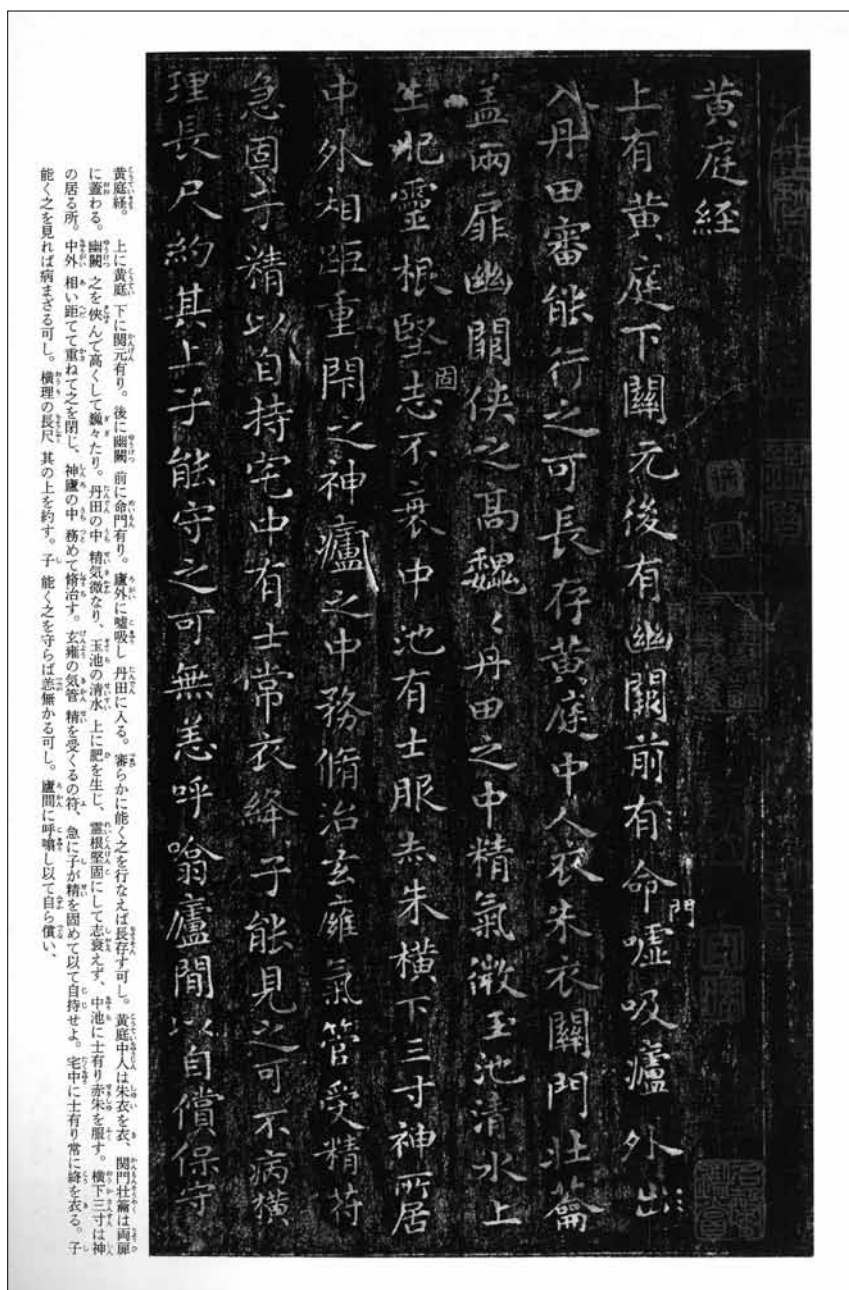 黄庭経
上有黄庭下關元後有幽闕前有命門嘘吸廬外出
入丹田審能行之可長存黄庭中人衣朱衣關門壮籥
盖兩扉幽闕侠之高巍〻丹田之中精氣微玉池清水上
生肥靈根堅固志不衰中池有士服赤朱横下三寸神所居
中外相距重閇之神廬之中務脩治玄㢕氣管受精符
急固子精以自持宅中有士常衣絳子能見之可不病横
理長尺約其上子能守之可無恙呼噏廬閒以自償保守
黄庭経。 上に黄庭 下に関元有り。後に幽闕 前に命門有り。廬外に嘘吸し 丹田に入る。審らかに能く之を行なえば長存す可し。黄庭中人は朱衣を衣、関門壮籥は両扉
に蓋わる。幽闕 之を侠んで高くして巍々たり。丹田の中 精気微なり、玉池の清水 上に肥を生じ、霊根堅固にして志衰えず、中池に士有り赤朱を服す。横下三寸は神
の居る所。中外 相い距てて重ねて之を閉じ、神廬の中 務めて脩治す。玄㢕の気管 精を受くるの符、急に子が精を固めて以て自持せよ。宅中に士有り常に絳を衣る。子
能く之を見れば病まざる可し。横理の長尺 其の上を約す。子 能く之を守らば恙無かる可し。廬間に呼噏し以て自ら償い、